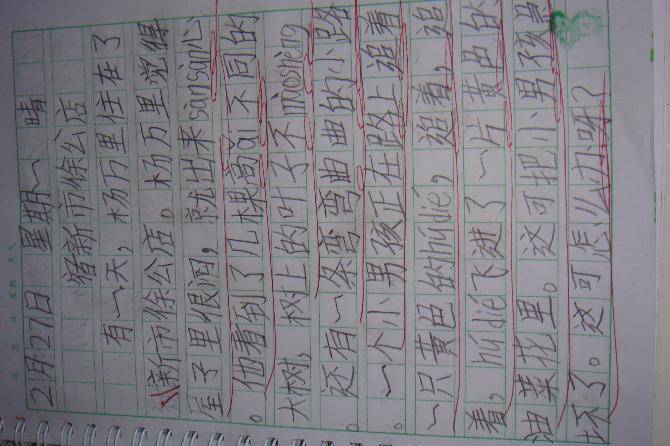 2月27日 星期一 晴
宿新市徐公店
有一天，杨万里住在了
新市徐公店。杨万里觉得
屋子里很闷，就出来sànsàn心
。他看到了几棵高ǎi不同的
大树，树上的叶子不màoshèng
。还有一条弯弯曲曲的小路
。一个小男孩正在路上追着
一只黄色的húdié，追着，追
着，húdié飞进了一片黄色的
油菜花里。这可把小男孩急
坏了。这可怎么办呀？